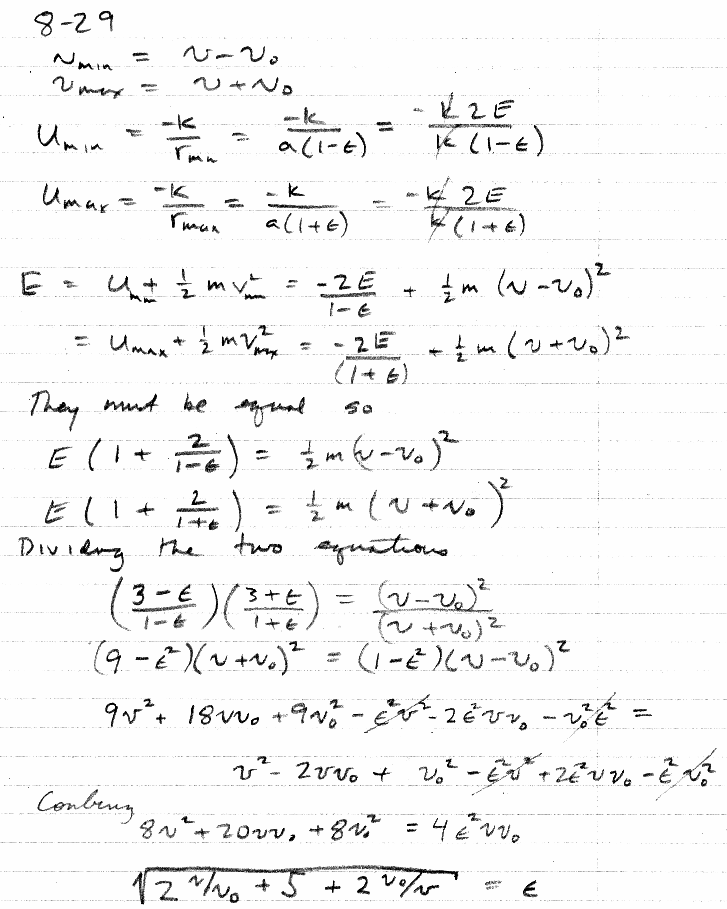 8-29
v_min = v - v₀
v_max = v + v₀
U_min = -k/r_min = -k/a(1-ε) = -k 2E/k (1-ε)
U_max = -k/r_max = -k/a(1+ε) = -k 2E/k (1+ε)
E = U_min + ½ m v_min² = -2E/1-ε + ½ m (v - v₀)²
= U_max + ½ m v_max² = -2E/(1+ε) + ½ m (v + v₀)²
They must be equal so
E (1 + 2/1-ε) = ½ m (v - v₀)²
E (1 + 2/1+ε) = ½ m (v + v₀)²
Dividing the two equations
(3-ε/1-ε)(3+ε/1+ε) = (v-v₀)²/(v+v₀)²
(9-ε²)(v+v₀)² = (1-ε²)(v-v₀)²
9v² + 18vv₀ + 9v₀² - ε²v² - 2ε²vv₀ - v₀²ε² =
v² - 2vv₀ + v₀² - ε²v² + 2ε²vv₀ - ε²v₀²
Combining
8v² + 20vv₀ + 8v₀² = 4ε²vv₀
√(2 v/v₀ + 5 + 2 v₀/v) = ε